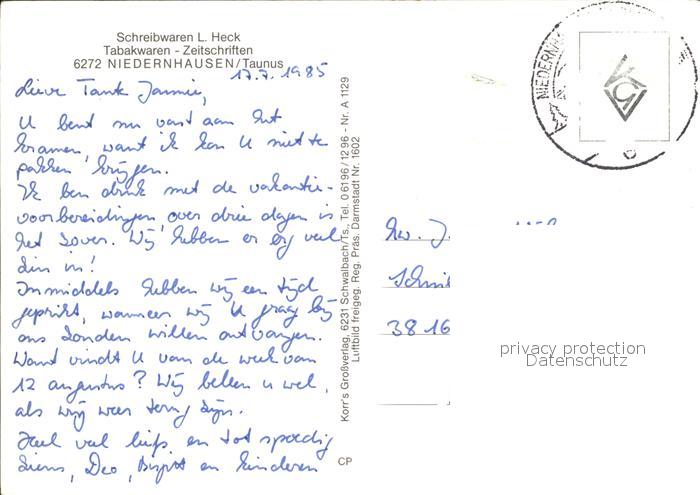 Schreibwaren L. Heck
Tabakwaren - Zeitschriften
6272 NIEDERNHAUSEN/Taunus
17.7.1985
Lieve Tante Jannie,
U bent nu vast aan het
kramen, want ik kan U niet te
pakken krijgen.
Ik ben druk met de vakantie-
voorbereidingen, over drie dagen is
het zover. Wij hebben er erg veel
zin in!
Inmiddels hebben wij een tijd
geprikt, wanneer wij U graag bij
ons zouden willen ontvangen.
Want vindt U van de week van
12 augustus? Wij bellen u wel,
als wij weer terug zijn.
Heel veel liefs en tot spoedig
ziens, Deo, en kinderen
Korr's Großverlag, 6231 Schwalbach/Ts., Tel. 06196/1296 - Nr. A 1129
Luftbild freigeg. Reg. Präs. Darmstadt Nr. 1602
CP
J.
3816
privacy protection
Datenschutz